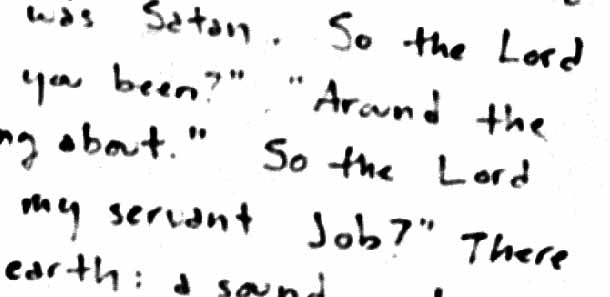 was Satan. So the Lord
you been?" "Around the
ng about." So the Lord
my servant Job?" There
earth: a sound